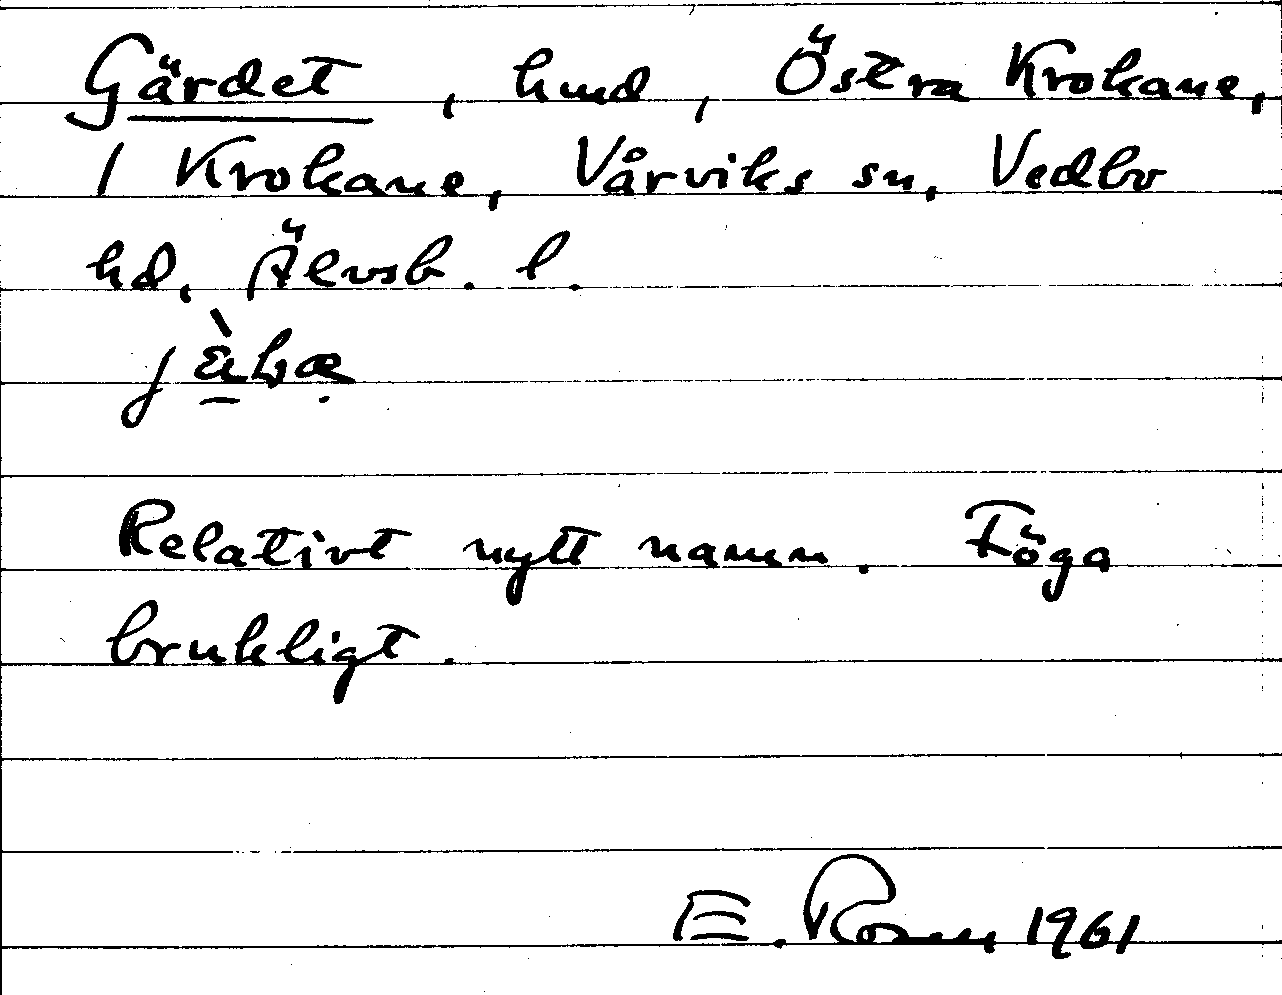 Gärdet, hmd, Östra Krokane,
1 Krokane, Vårviks sn, Vedbo
hd, Älvsb. l.
Relativt nytt namn. Föga
brukligt.
E. Rosen 1961